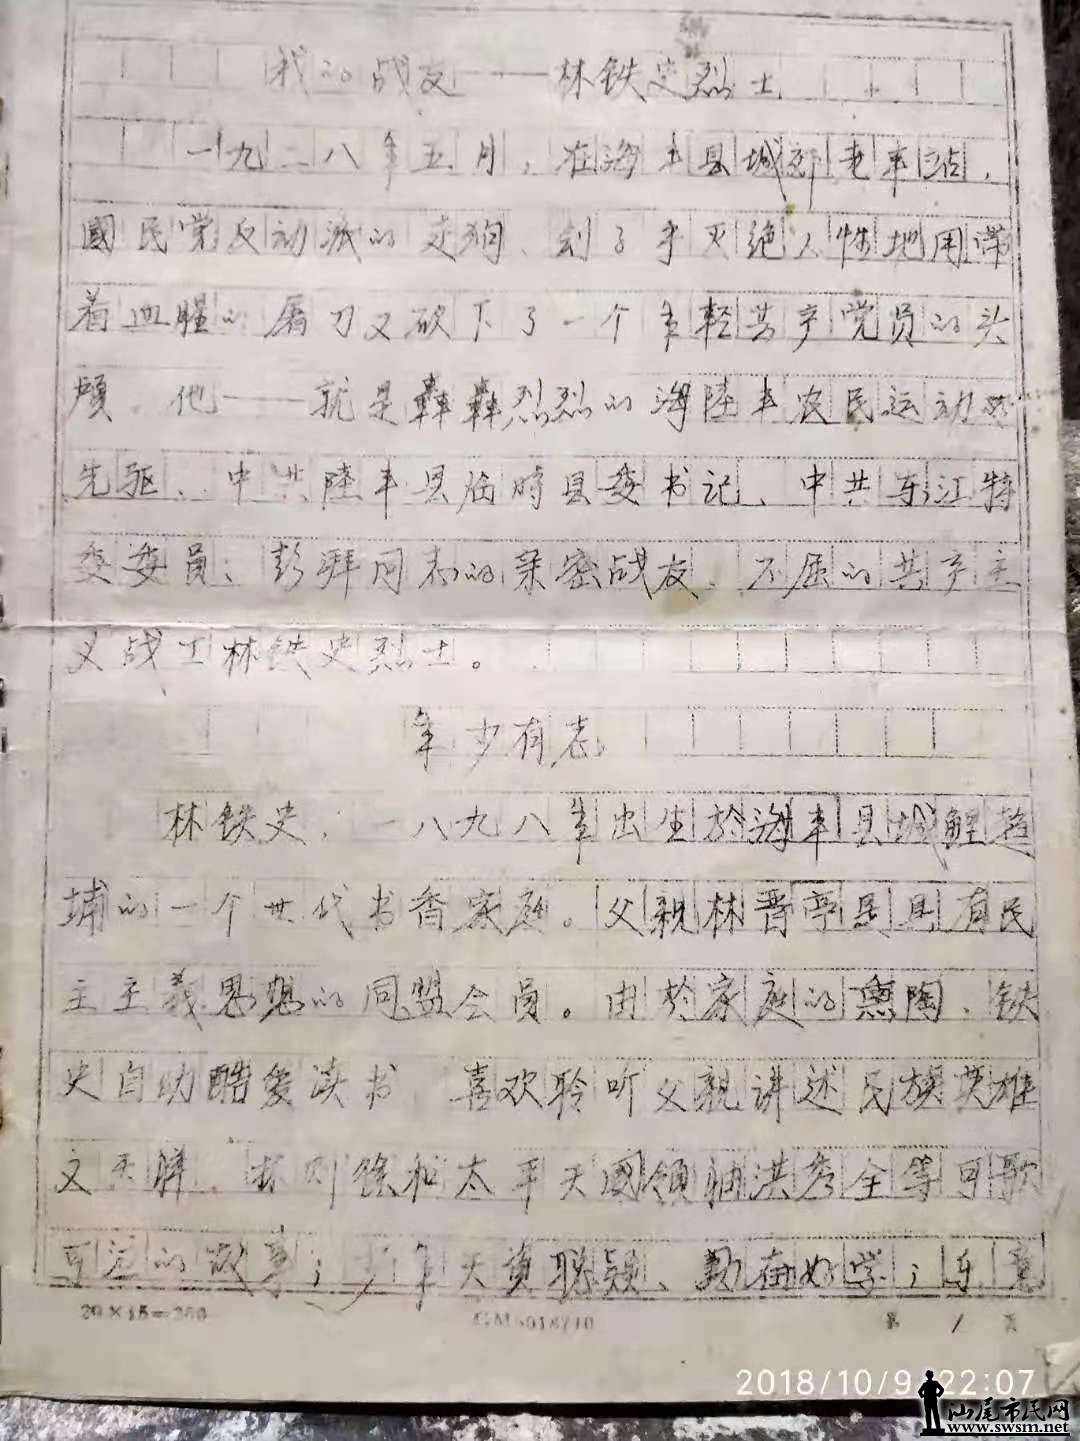 我的战友——林铁史烈士
一九二八年五月，在海丰县城郊老车站，
國民党反动派的走狗、刽子手灭绝人性地用带
着血腥的屠刀又砍下了一个年轻共产党员的头
颅。他——就是轰轰烈烈的海陸丰农民运动的
先驱、中共陸丰县临時县委书记、中共东江特
委委员、彭湃同志的亲密战友、不屈的共产主
义战士林铁史烈士。
年少有志
林铁史，一八九八年出生於海丰县城
埔的一个世代书香家庭。父親林晋亭是具有民
主主義思想的同盟会员。由於家庭的熏陶，铁
史自幼酷爱读书，喜欢聆听父親讲述民族英雄
文天祥、林则徐和太平天國领袖洪秀全等可歌
可泣的故事；少年天資聪颖、勤奋好学；乐意
20×15=300
第 1 页
2018/10/9 22:07
汕尾市民网
www.swsm.net